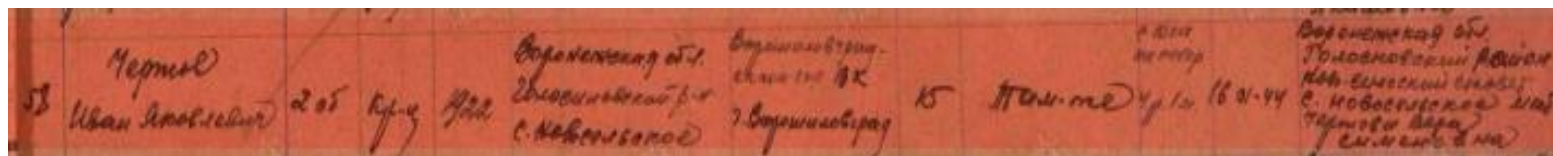 53
Чертов
Иван Яковлевич
2 об
Кр-ц
1922
Воронежская обл.
Голосновский р-н
с. Новосельское
Ворошиловград-
РВК
г. Ворошиловград
Там-же
16 XI-44
Воронежская обл.
Голосновский район
сельский совет
с. Новосельское мать
Чертова Вера
Сименовна